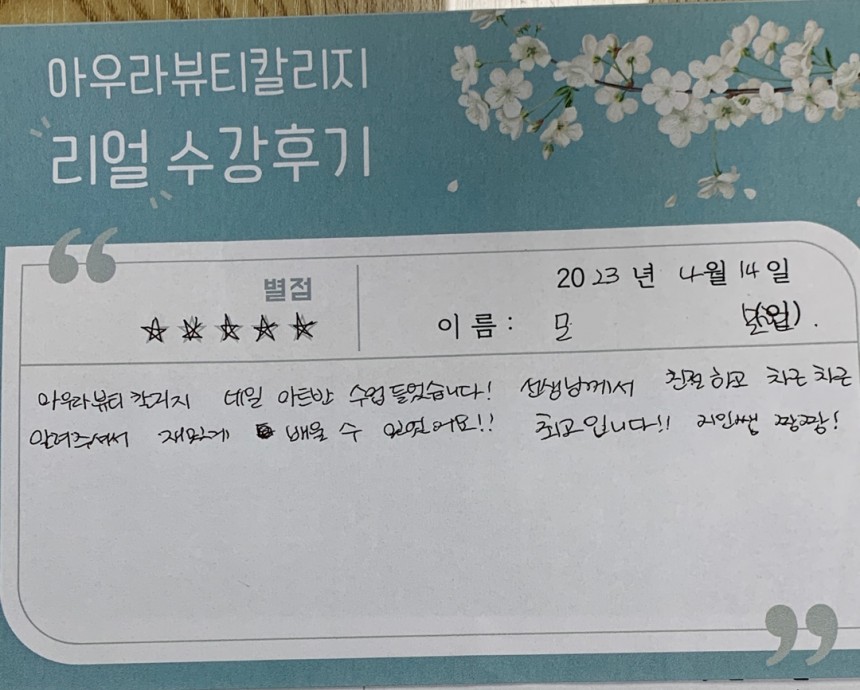 아우라뷰티칼리지
리얼 수강후기
별점
2023 년 4월 14일
이 름 :
아우라뷰티 칼리지 네일 아트반 수업 들었습니다! 선생님께서 친절하고 차근차근
알려주셔서 재밌게 배울 수 있었어요!! 최고입니다!! 지인쌤 짱짱!